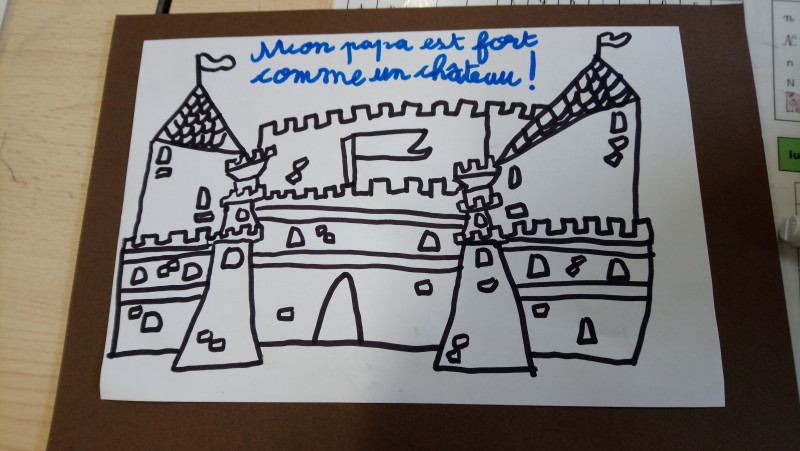 Mon papa est fort
comme un château !
n
N
n
N
lu